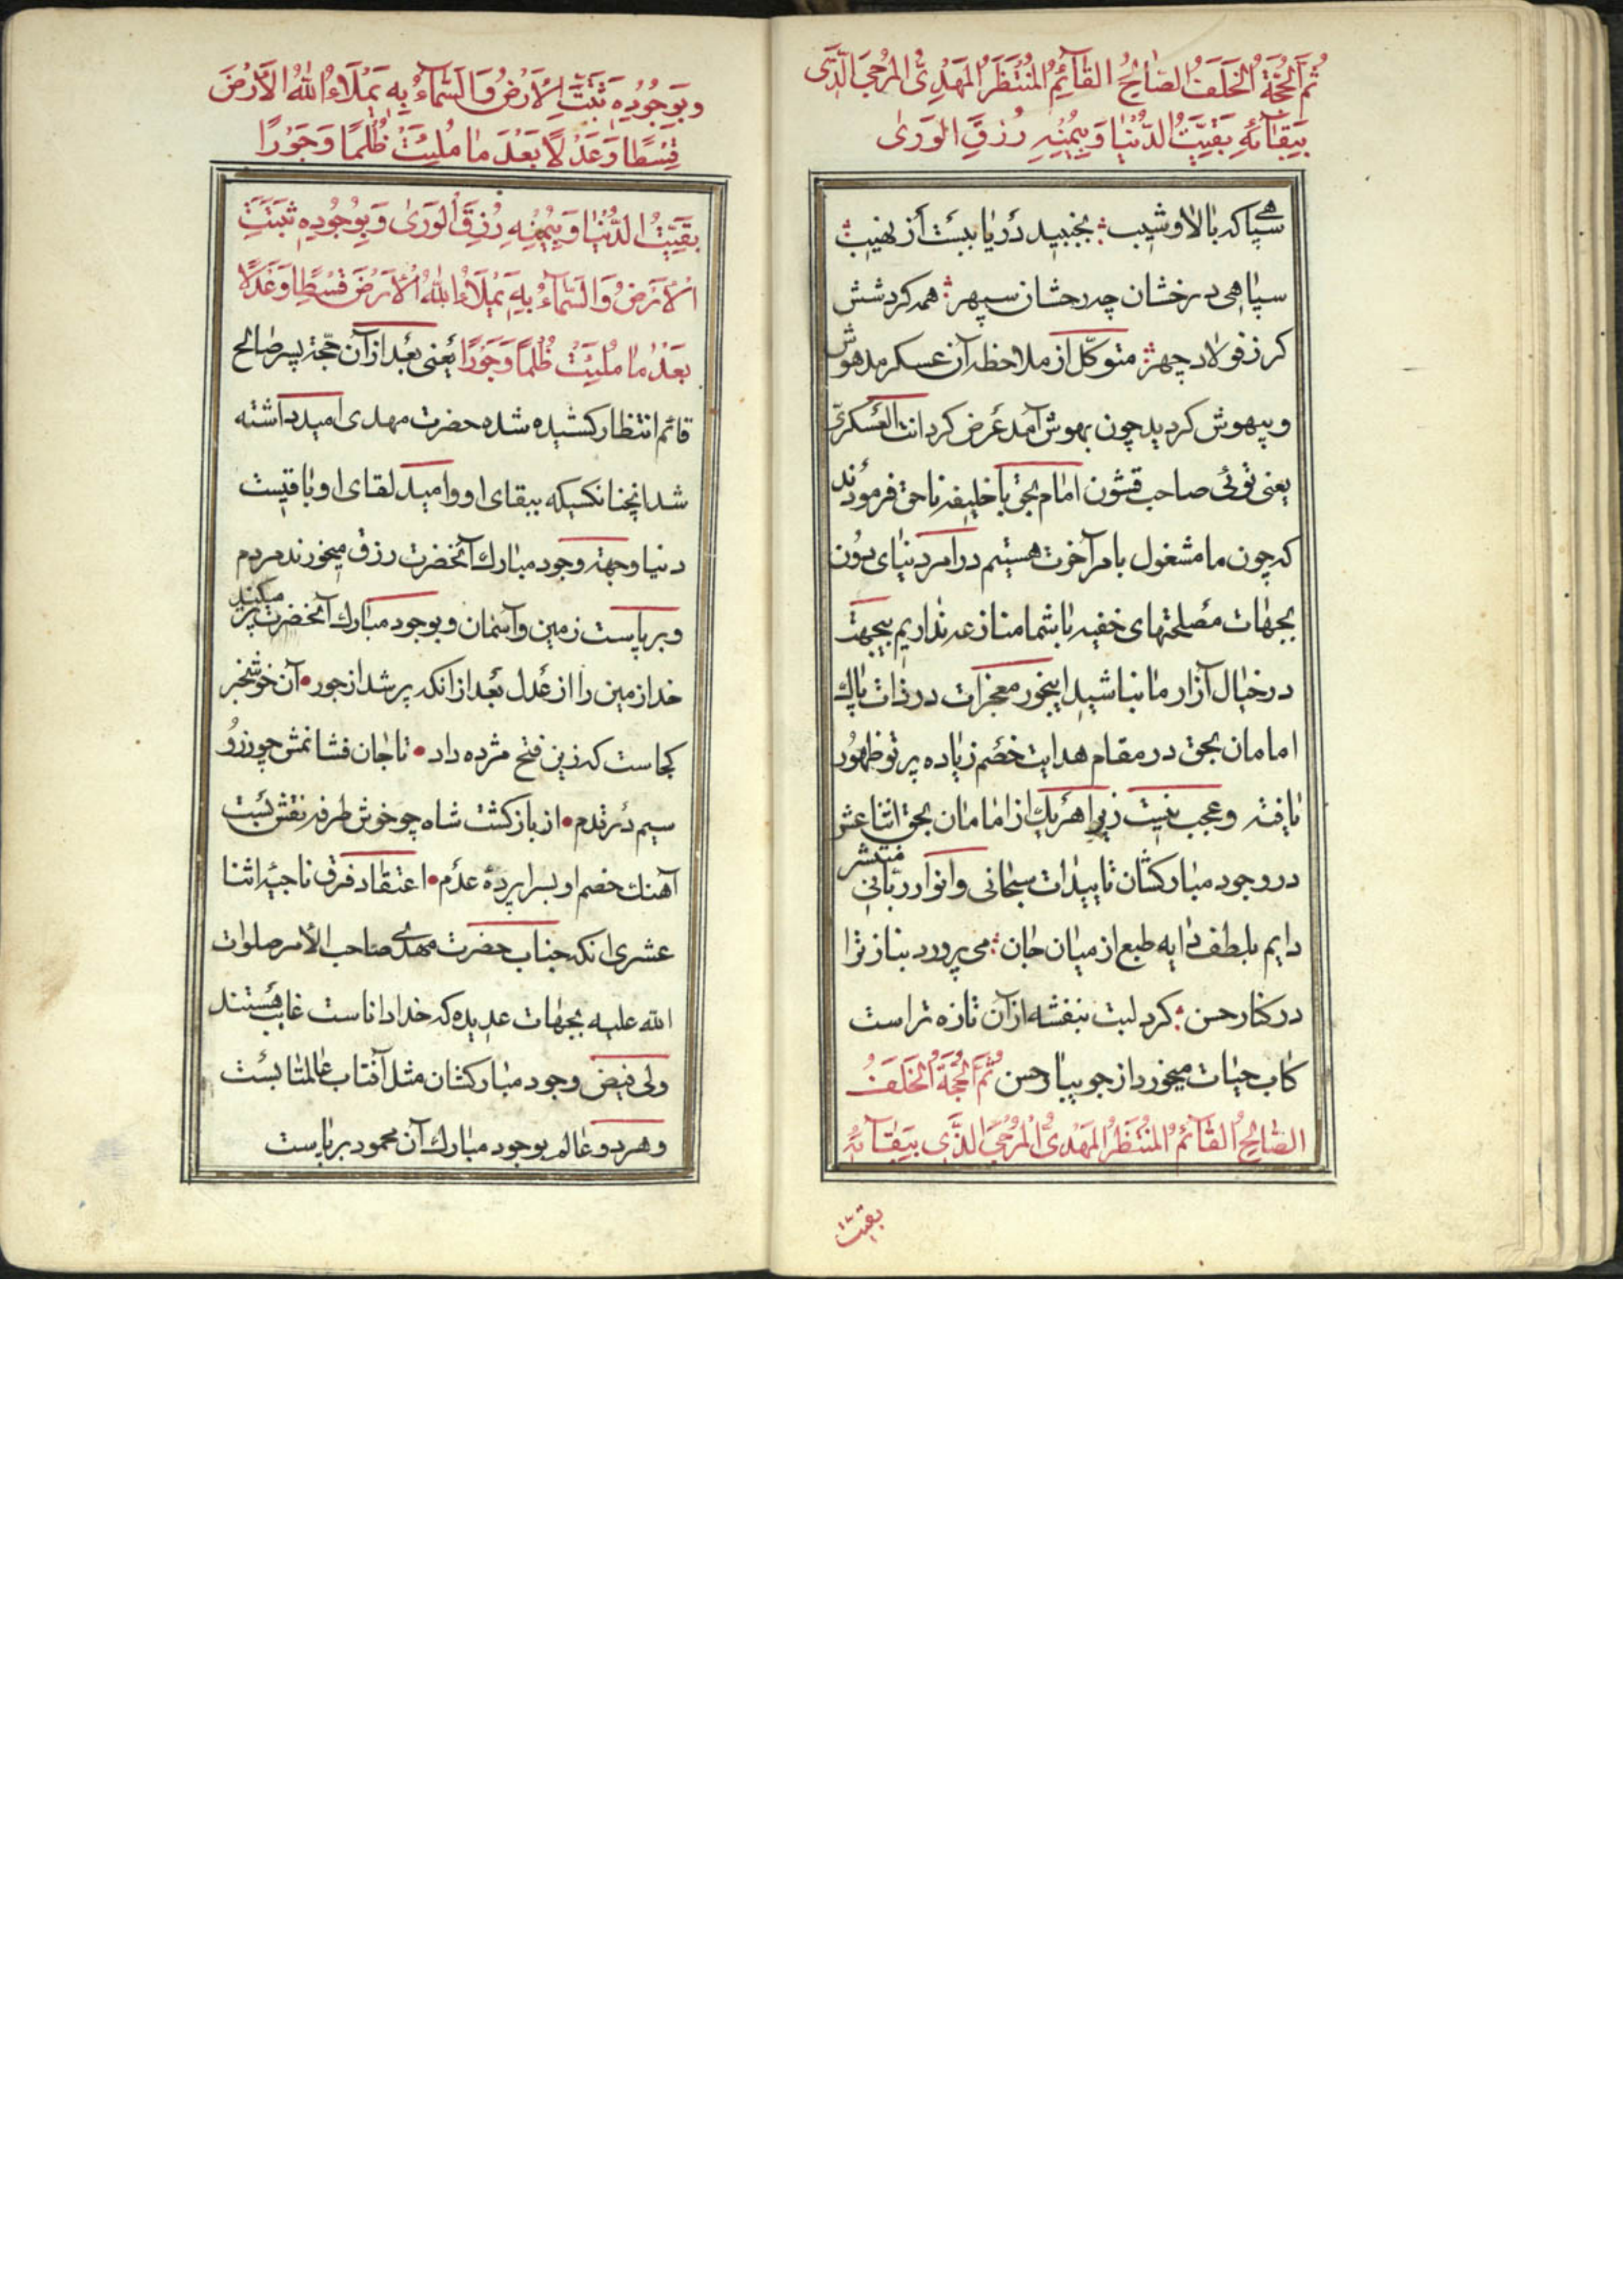 ثُمَّ الْحُجَّةُ الْخَلَفُ الصّٰالِحُ القٰآئِمُ المُنْتَظَرُ المَهْدِیُّ المُرْجَی الَّذی
بِبَقٰآئِهِ بَقِیَّتِ الدُّنْیٰا وَ بِیُمْنِهِ رُزِقَ الوَریٰ
سپاهی که بالا و شیب ؞ بجنبید دریا ببست از نهیب ؞
سپاهی درخشان چه رخشان سپهر ؞ همه کردشش
کرز فولاد چهر ؞ متوکّل از ملاحظه آن عسکر مدهوش
و بیهوش کردید چون بهوش آمد عرض کرد انت العسکری
یعنی توئی صاحب قشون امام بحق با خلیفه ناحق فرمودند
که چون ما مشغول بامر آخرت هستیم در امر دنیای دون
بجهات مصلحتهای خفیه با شما منازعه نداریم بیجهت
در خیال آزار ما نباشید اینجور معجزات در ذات پاک
امامان بحق در مقام هدایت خصم زیاده پرتو ظهور
یافته و عجب نیست زیرا هر یک از امامان بحق اثنا عشر
در وجود مبارکشان تاییدات سبحانی و انوار ربّانی منتشر
دایم بلطف دایه طبع از میان جان ؞ می پرورد بناز ترا
در کنار حسن ؞ کرد لبت بنفشه از آن تازه تر است
کاب حیات میخورد از جویبار حسن ثُمَّ الْحُجَّةُ الْخَلَفُ
الصّٰالِحُ القٰآئِمُ المُنْتَظَرُ المَهْدیُّ المُرْجَی الَّذی بِبَقٰآئِهِ
بقیت
وَبِوُجُودِهِ ثَبَتَتِ الاَرْضُ وَ السَّمٰآءُ بِهِ یَمْلَاءُ اللهُ الاَرْضَ
قِسْطًا وَعَدْلًا بَعْدَ مٰا مُلِئَتْ ظُلْمًا وَجَوْرًا
بَقِیَّتِ الدُّنْیٰا وَ بِیُمْنِهِ رُزِقَ الْوَریٰ وَ بِوُجُودِهِ ثَبَتَتِ
الْاَرْضُ وَ السَّمٰآءُ بِهِ یَمْلَاءُ اللهُ الْاَرْضَ قِسْطًا وَعَدْلًا
بَعْدَ مٰا مُلِئَتْ ظُلْمًا وَجَوْرًا یعنی بعد از آن حجّة پسر صالح
قائم انتظار کشیده شده حضرت مهدی امید داشته
شد انچنانکسیکه ببقای او و امید لقای او باقیست
دنیا و جهته وجود مبارک آنحضرت رزق میخورند مردم
و برپاست زمین و آسمان و بوجود مبارک آنحضرت پر میکند
خدا زمین را از عدل بعد از انکه پر شد از جور • آن خوشخبر
کجاست که زین فتح مژده داد • تا جان فشانمش چو زر و
سیم در قدم • از بازکشت شاه چو خوش طرفه نقش بست
آهنک خصم او بسراپرده عدم • اعتقاد فرق ناجیه اثنا
عشری انکه جناب حضرت مهدی صاحب الامر صلوات
الله علیه بجهات عدیده که خدا داناست غایب هستند
ولی فیض وجود مبارکشان مثل آفتاب عالمتابست
و هر دو عالم بوجود مبارک آن محمود برپاست